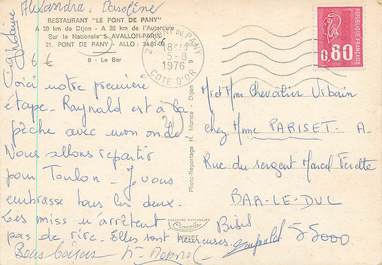 Alexandra. Caroline
RESTAURANT "LE PONT DE PANY"
A 20 km de Dijon - A 22 km de l'Autoroute
Sur la Nationale 5 AVALLON-PARIS
21. PONT DE PANY - ALLO : 34-61-00
6 €
9 - Le Bar
Voici notre première
étape. Raynald est à la
pêche avec mon oncle.
Nous allons repartir
pour Toulon - Je vous
embrasse tous les deux.
Les miss n'arrêtent
pas de rire. Elles sont heureuses.
Bons baisers
Photo-Reportage H. Moreau - Dijon
Combier
21 PONT DE PANY
18H
5-8
1976
COTE D'OR
0,80
FRANCE
Mr et Mme Chevalier Urbain
chez Mme PARISET - A-
Rue du sergent Marcel Ferette
BAR-LE-DUC
55000